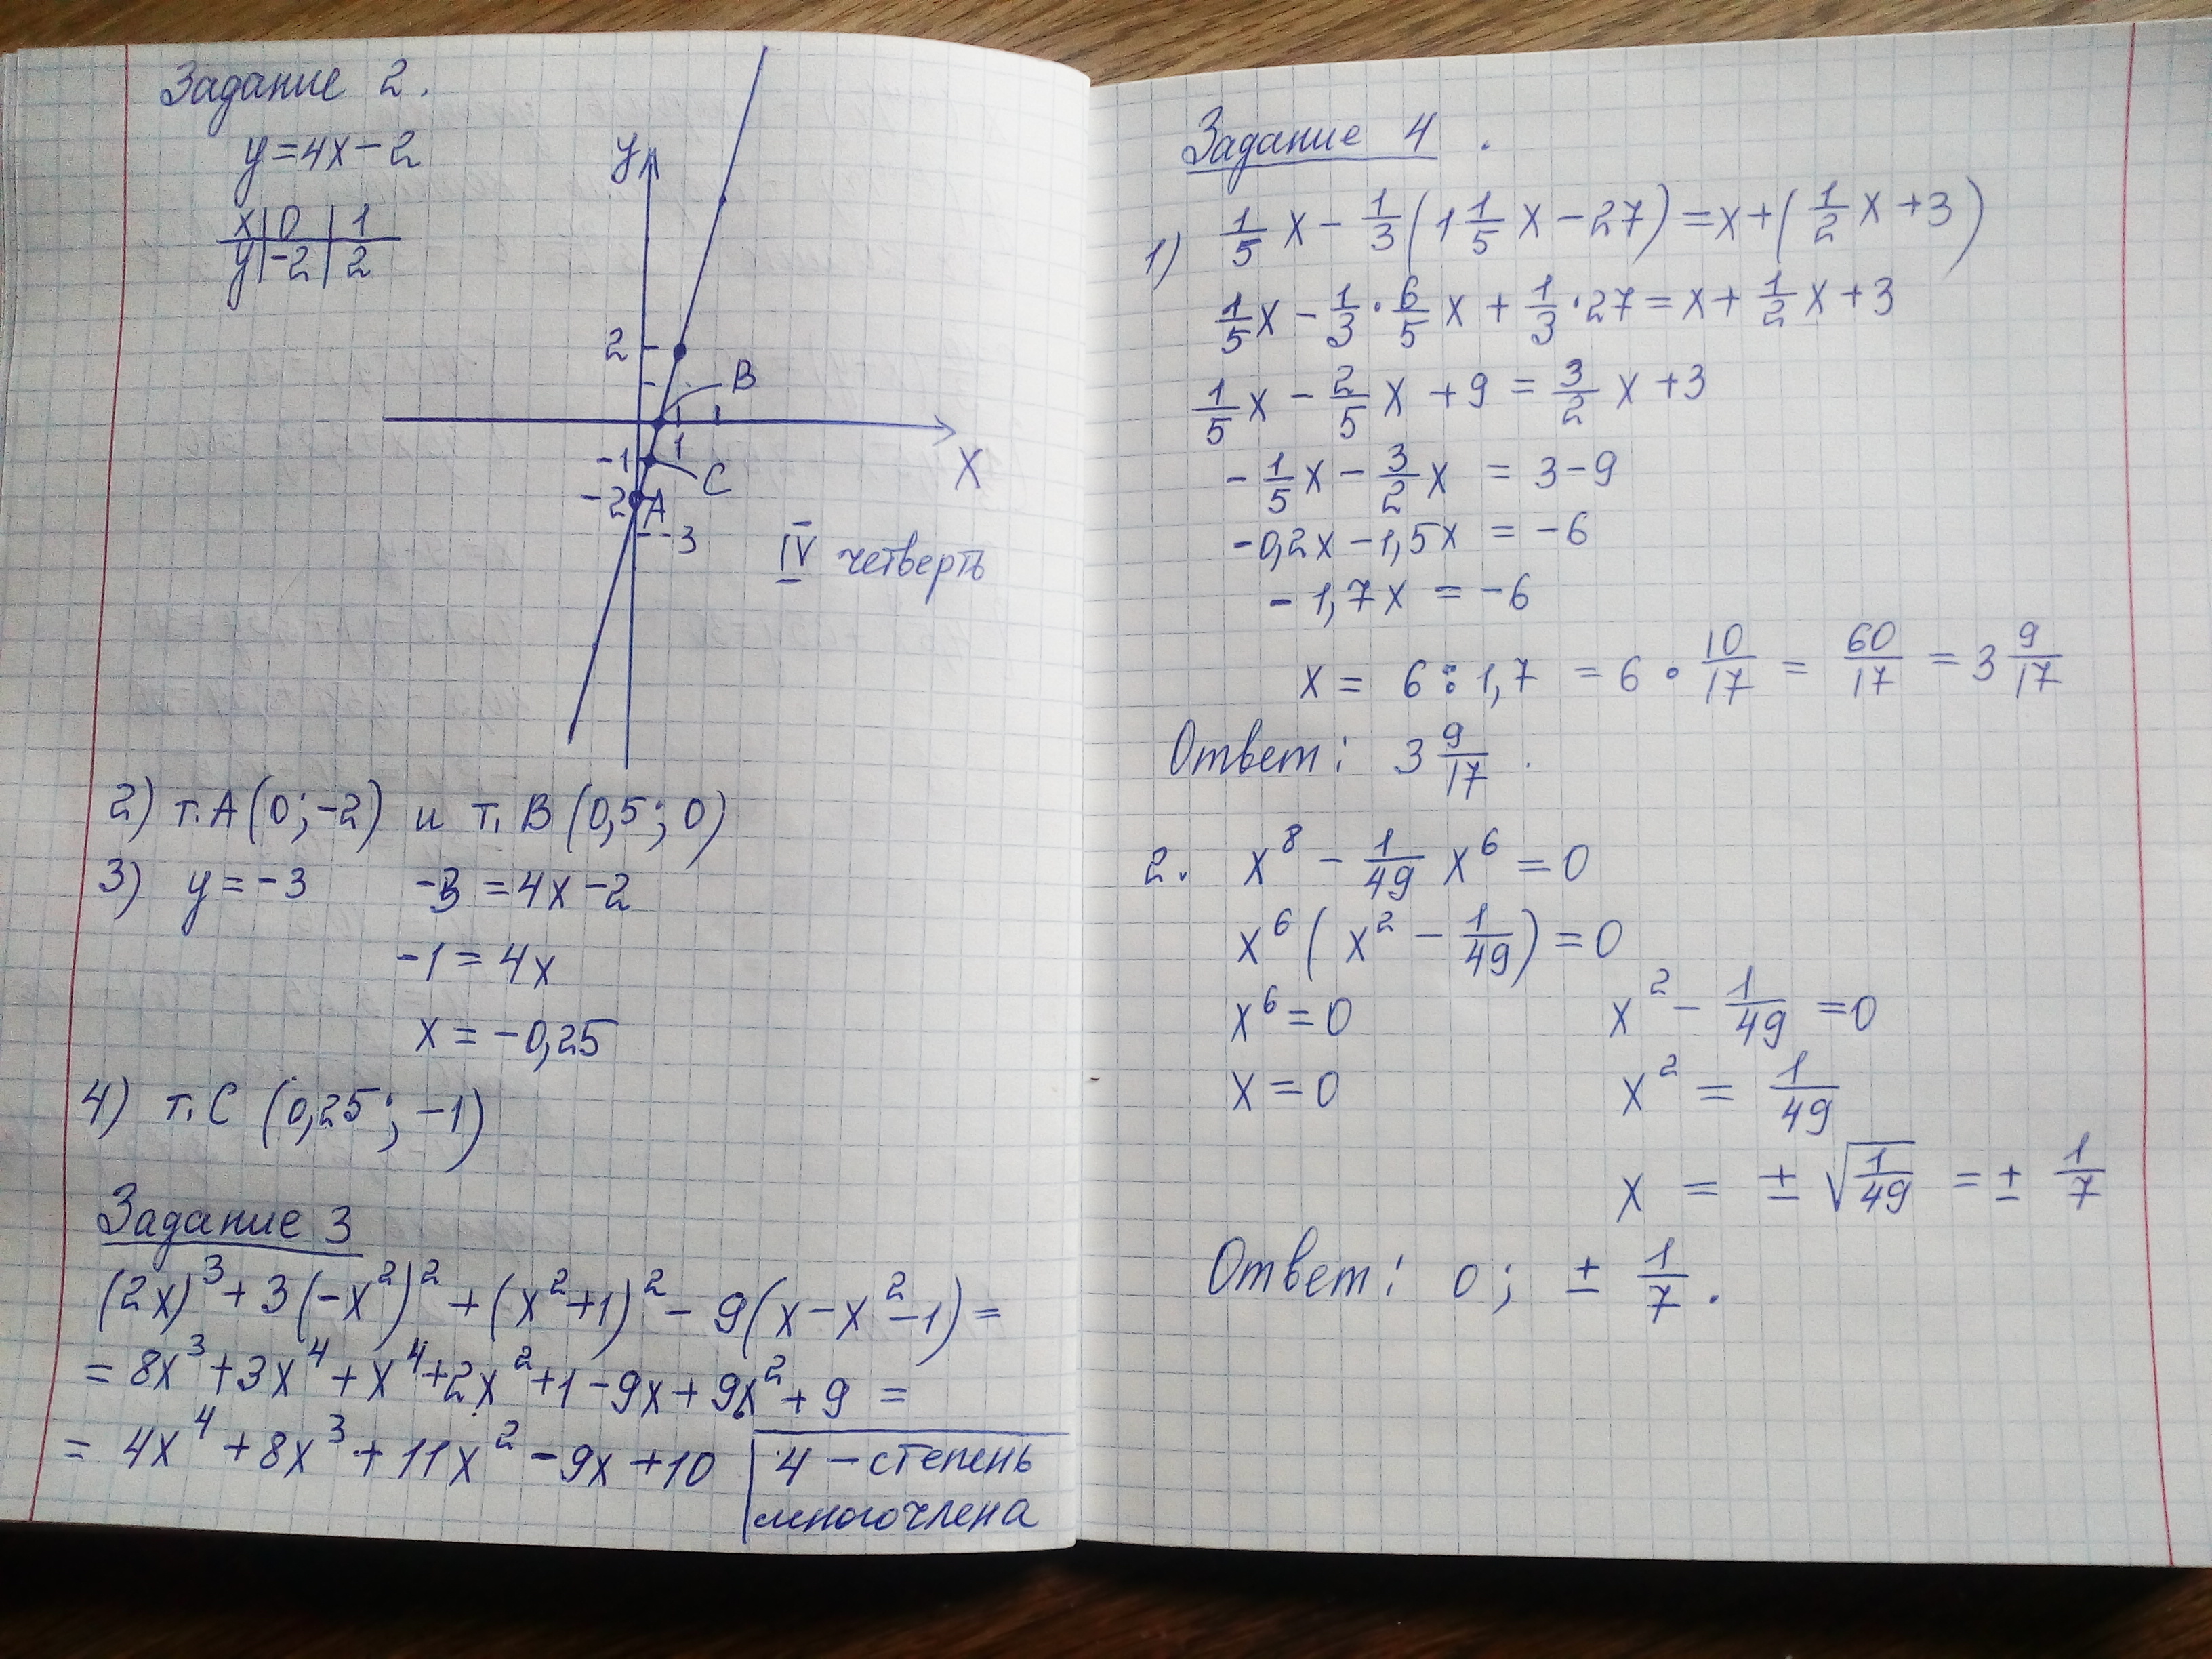 Задание 2.
y=4x-2
x | 0 | 1
y | -2 | 2
y
2
B
-1
1
C
X
-2
A
-3
IV четверть
2) т.A(0;-2) и т.B(0,5;0)
3) y=-3   -3=4x-2
-1=4x
x=-0,25
4) т.C (0,25;-1)
Задание 3
(2x)³+3(-x²)²+(x²+1)²-9(x-x²-1)=
=8x³+3x⁴+x⁴+2x²+1-9x+9x²+9=
=4x⁴+8x³+11x²-9x+10
4-степень
многочлена
Задание 4.
1) 1/5 x - 1/3(1 1/5 x - 27)=x+(1/2 x+3)
1/5 x - 1/3 · 6/5 x + 1/3 · 27 = x + 1/2 x + 3
1/5 x - 2/5 x + 9 = 3/2 x + 3
- 1/5 x - 3/2 x = 3-9
-0,2x-1,5x = -6
-1,7x = -6
x = 6 : 1,7 = 6 · 10/17 = 60/17 = 3 9/17
Ответ: 3 9/17.
2. x⁸ - 1/49 x⁶ = 0
x⁶(x² - 1/49) = 0
x⁶=0   x² - 1/49 = 0
x=0   x² = 1/49
x = ± √1/49 = ± 1/7
Ответ: 0; ± 1/7.